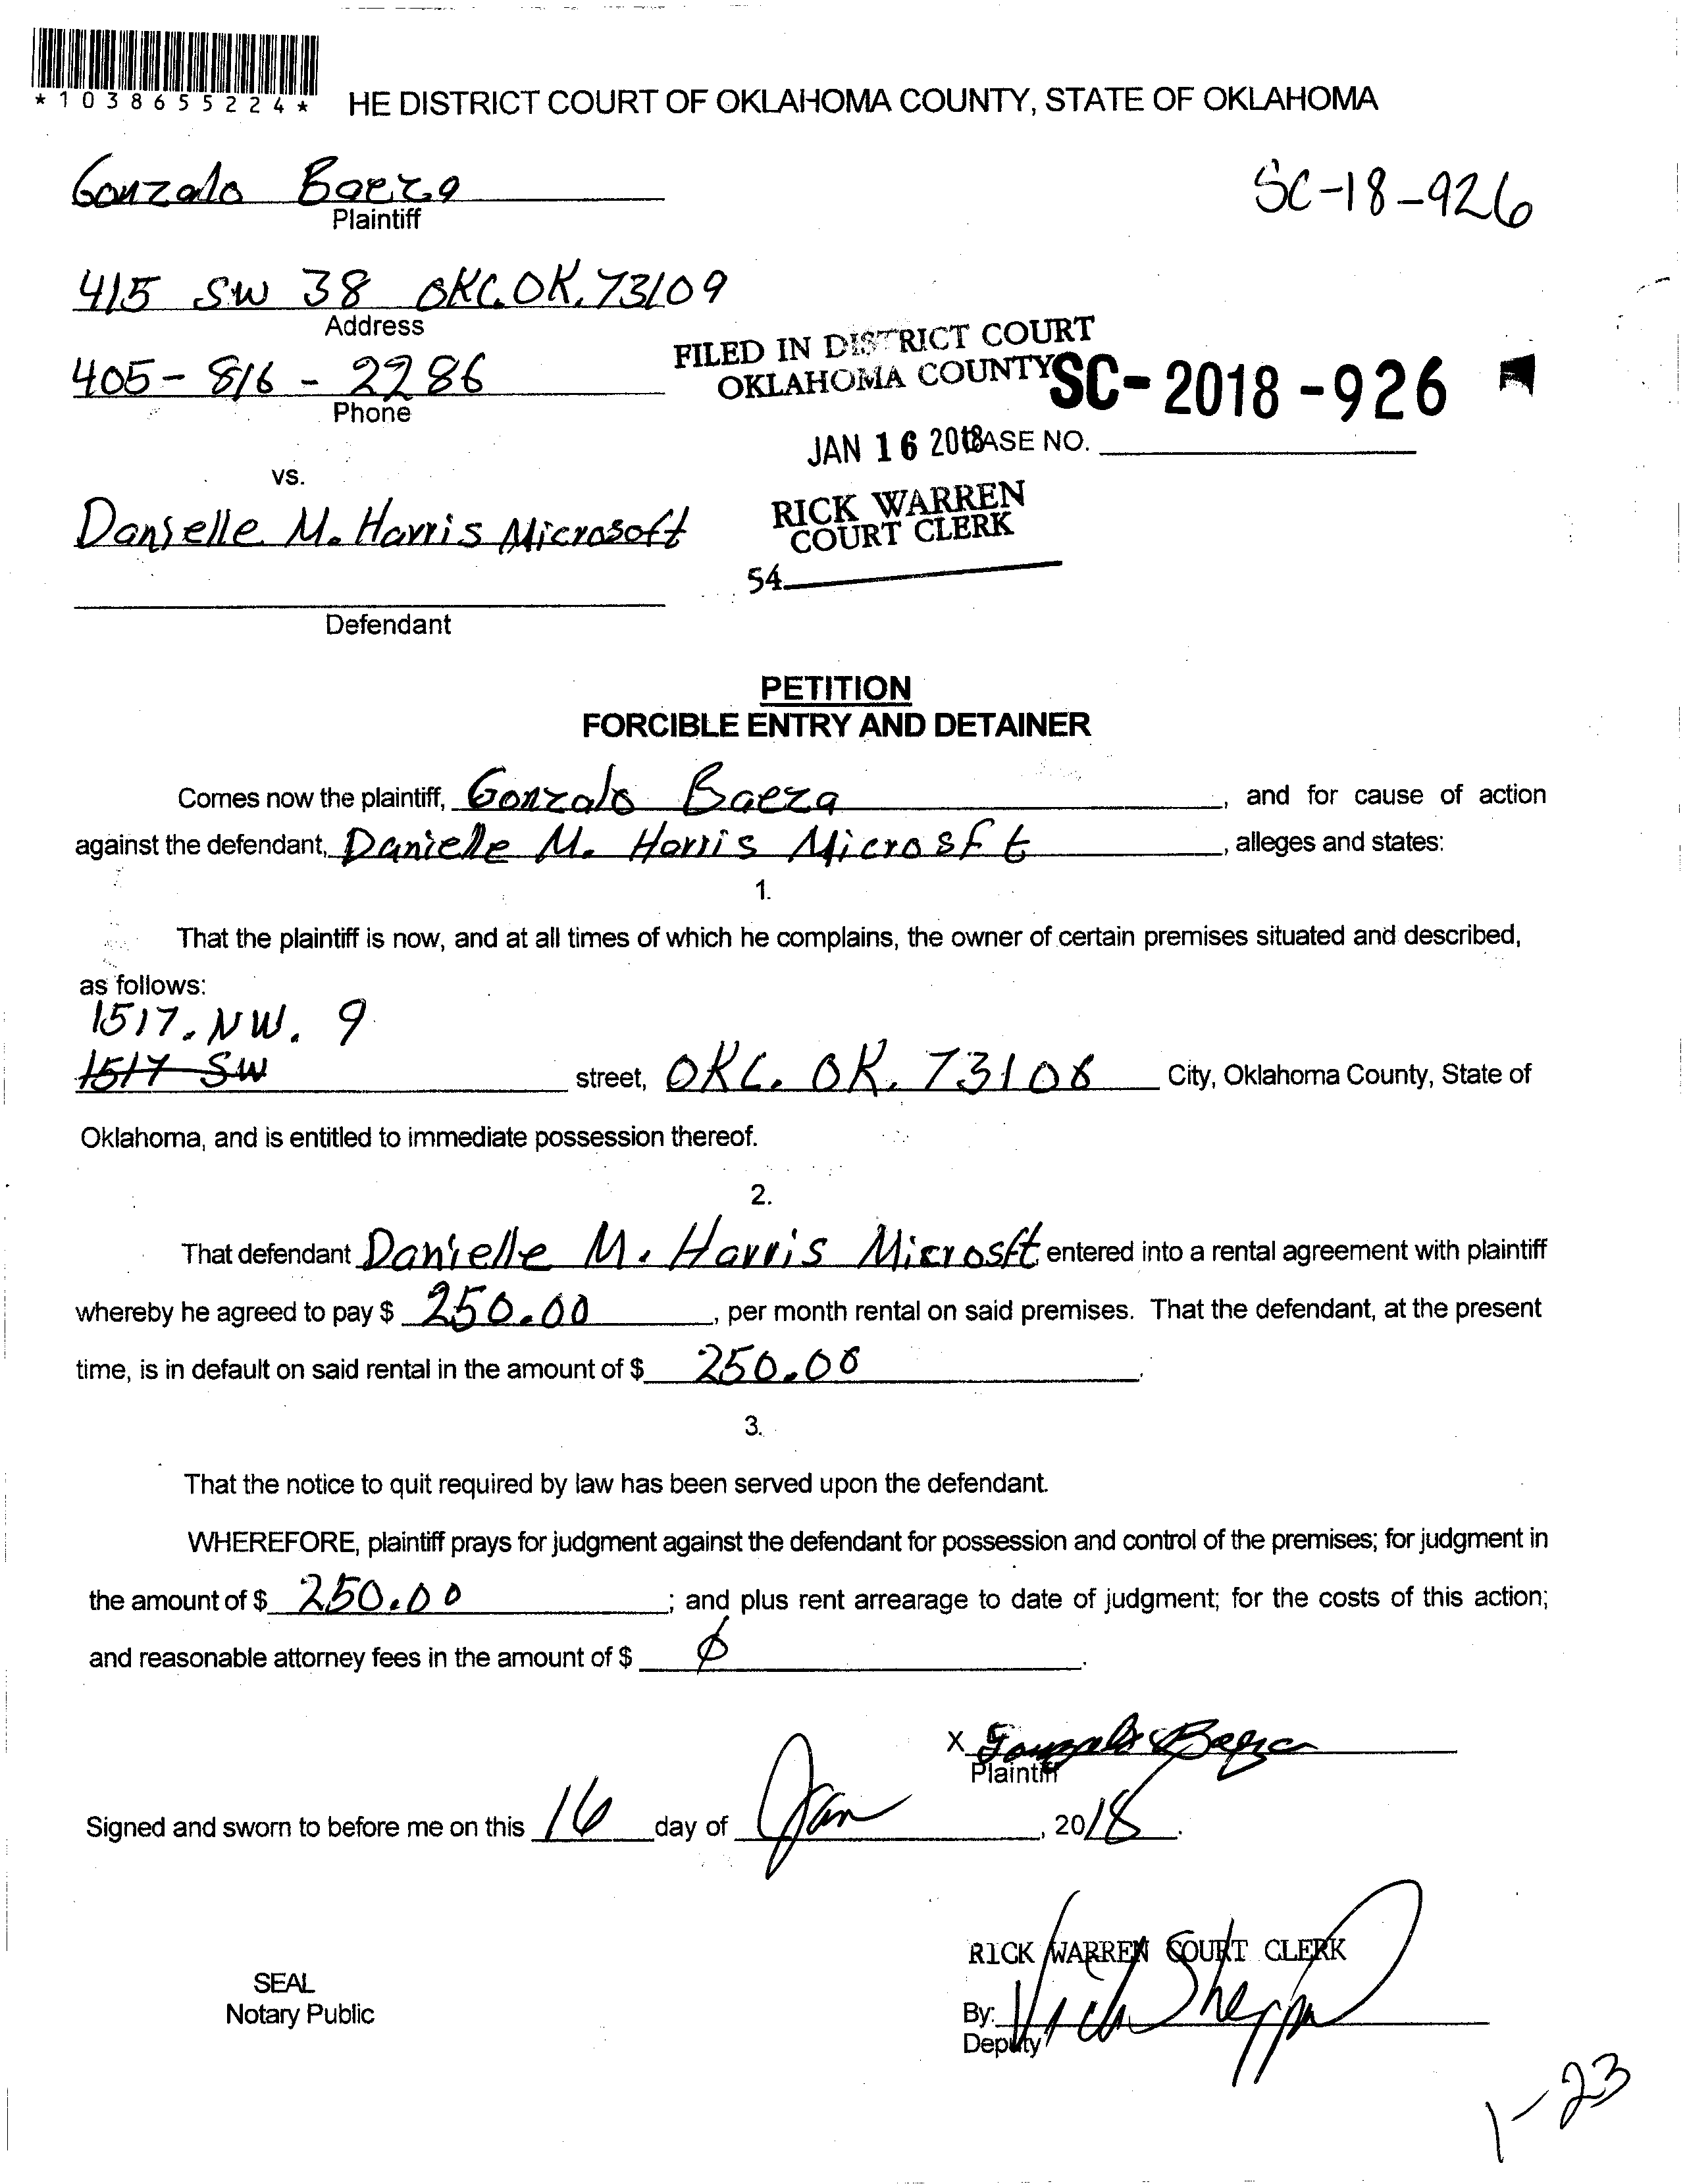 *1038655224*
HE DISTRICT COURT OF OKLAHOMA COUNTY, STATE OF OKLAHOMA
Gonzalo Baeza
Plaintiff
SC-18-926
415 SW 38 OKC. OK. 73109
Address
FILED IN DISTRICT COURT
OKLAHOMA COUNTY
SC-2018-926
405-816-2286
Phone
JAN 16 2018
CASE NO.
vs.
RICK WARREN
COURT CLERK
Danielle M. Harris Microsoft
54
Defendant
PETITION
FORCIBLE ENTRY AND DETAINER
Comes now the plaintiff, Gonzalo Baeza, and for cause of action
against the defendant, Danielle M. Harris Microsft, alleges and states:
1.
That the plaintiff is now, and at all times of which he complains, the owner of certain premises situated and described,
as follows:
1517. NW. 9
1517 SW street, OKC. OK. 73106 City, Oklahoma County, State of
Oklahoma, and is entitled to immediate possession thereof.
2.
That defendant Danielle M. Harris Microsft entered into a rental agreement with plaintiff
whereby he agreed to pay $ 250.00, per month rental on said premises. That the defendant, at the present
time, is in default on said rental in the amount of $ 250.00.
3.
That the notice to quit required by law has been served upon the defendant.
WHEREFORE, plaintiff prays for judgment against the defendant for possession and control of the premises; for judgment in
the amount of $ 250.00; and plus rent arrearage to date of judgment; for the costs of this action;
and reasonable attorney fees in the amount of $ ∅.
X Gonzalo Baeza
Plaintiff
Signed and sworn to before me on this 16 day of Jan, 2018.
RICK WARREN COURT CLERK
SEAL
Notary Public
By:
Deputy
1-23